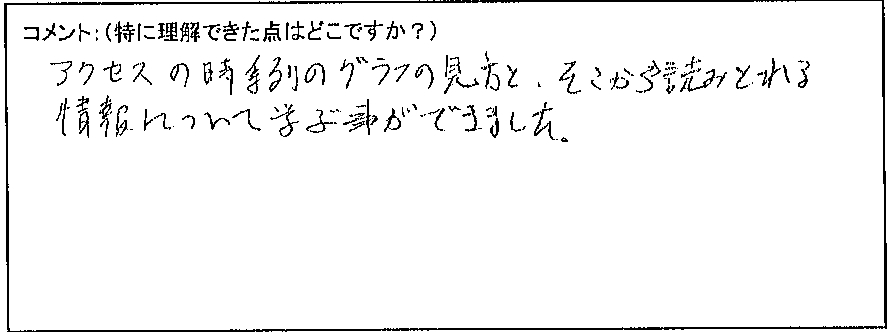 コメント:(特に理解できた点はどこですか？)
アクセスの時系列のグラフの見方と、そこから読みとれる
情報について学ぶ事ができました。